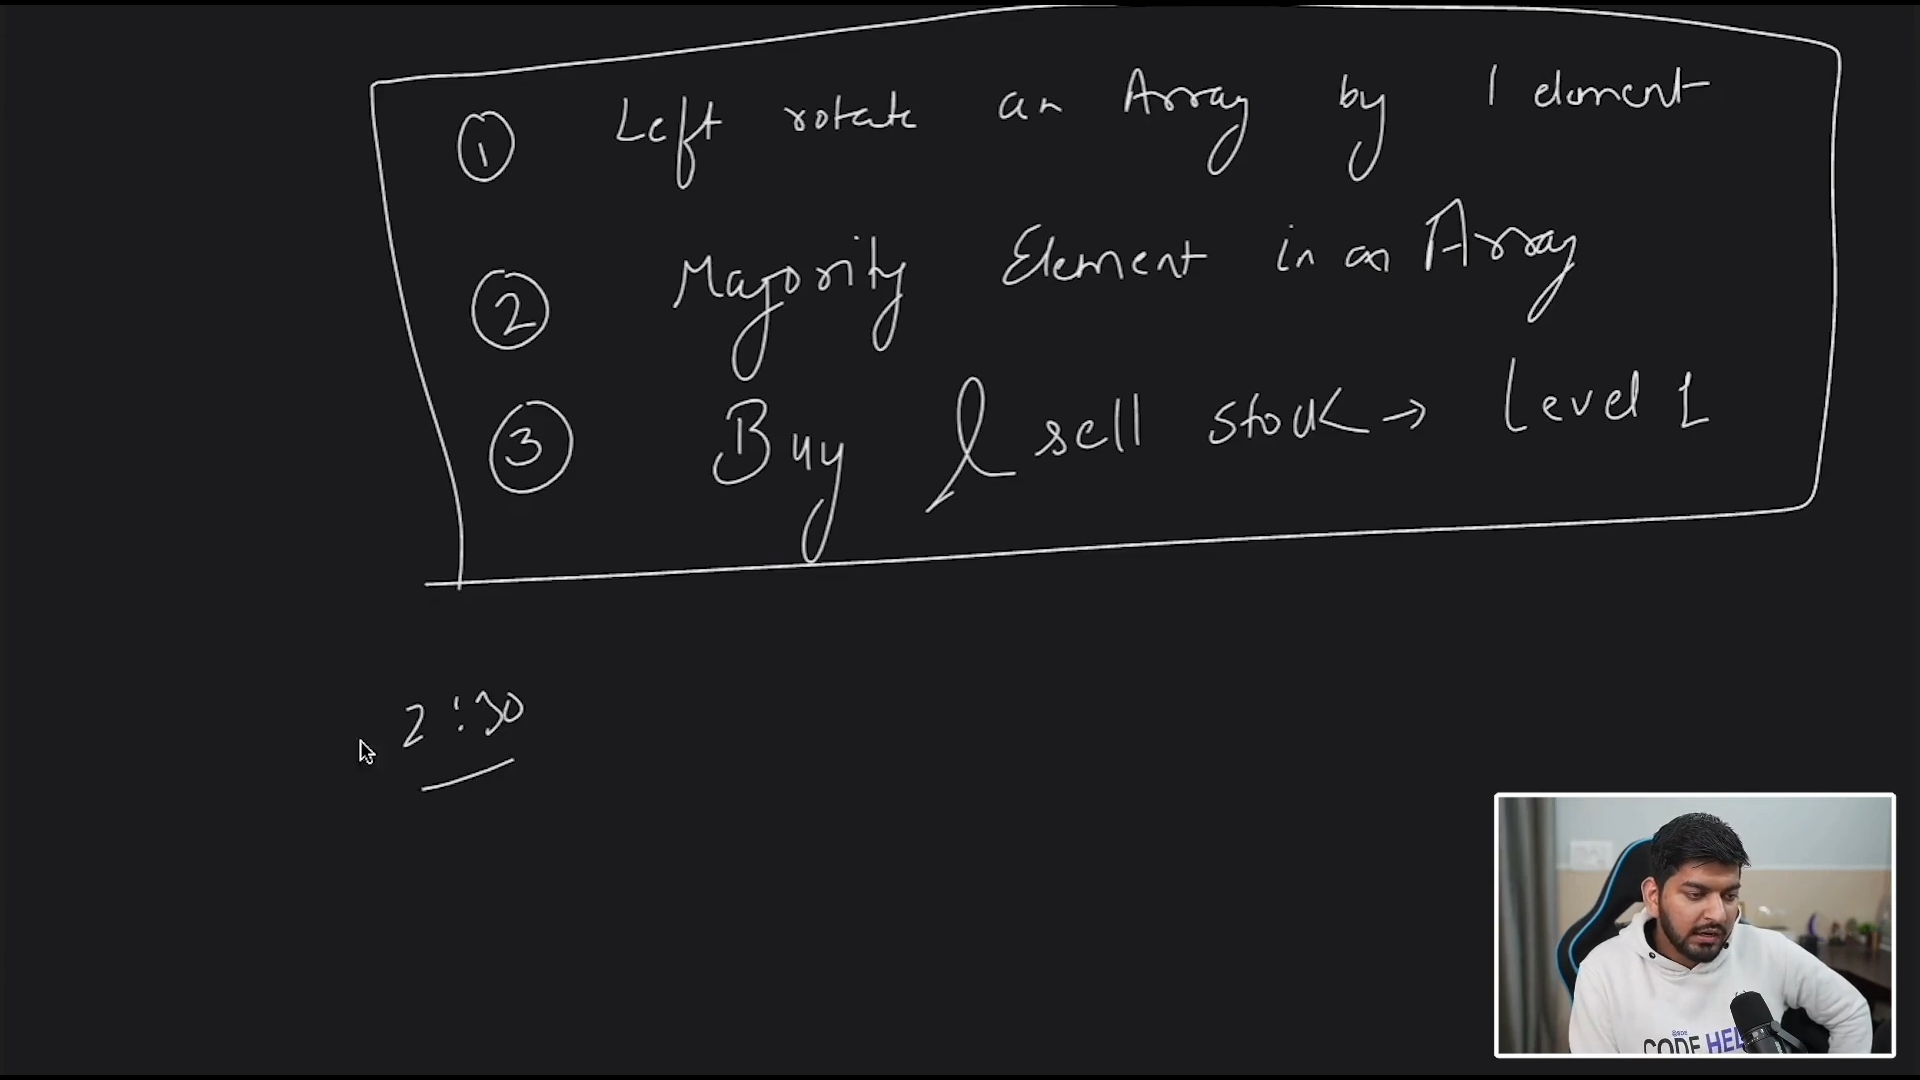 ① Left rotate an Array by 1 element
② Majority Element in an Array
③ Buy & sell stock → Level 1
2:30
CODE HEL